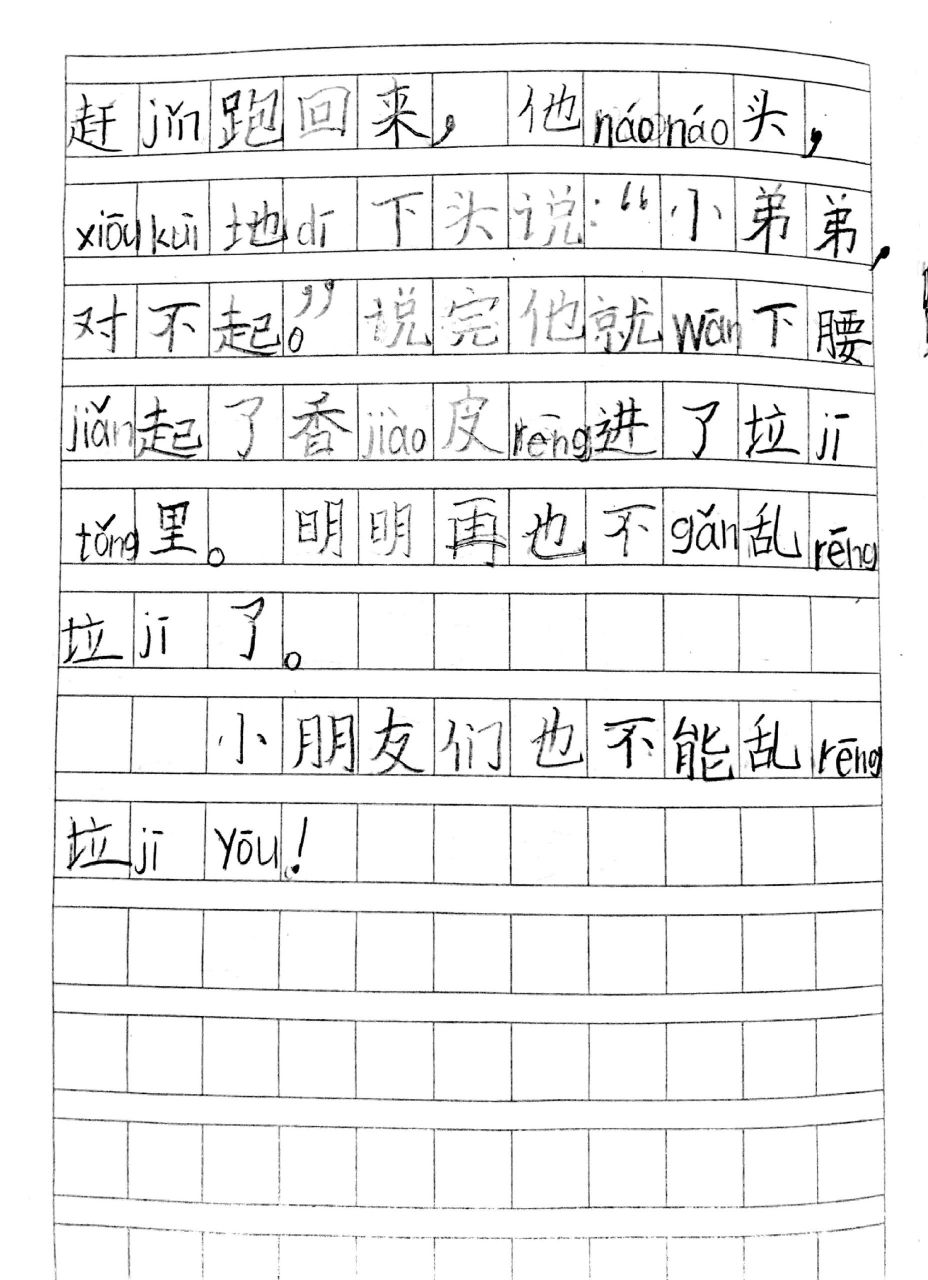 赶jǐn跑回来，他náonáo头，
xiōukuī地dī下头说：“小弟弟，
对不起。”说完他就wān下腰
jiǎn起了香jiāo皮rēng进了垃jī
tǒng里。明明再也不gǎn乱rēng
垃jī了。
小朋友们也不能乱rēng
垃jīyōu！